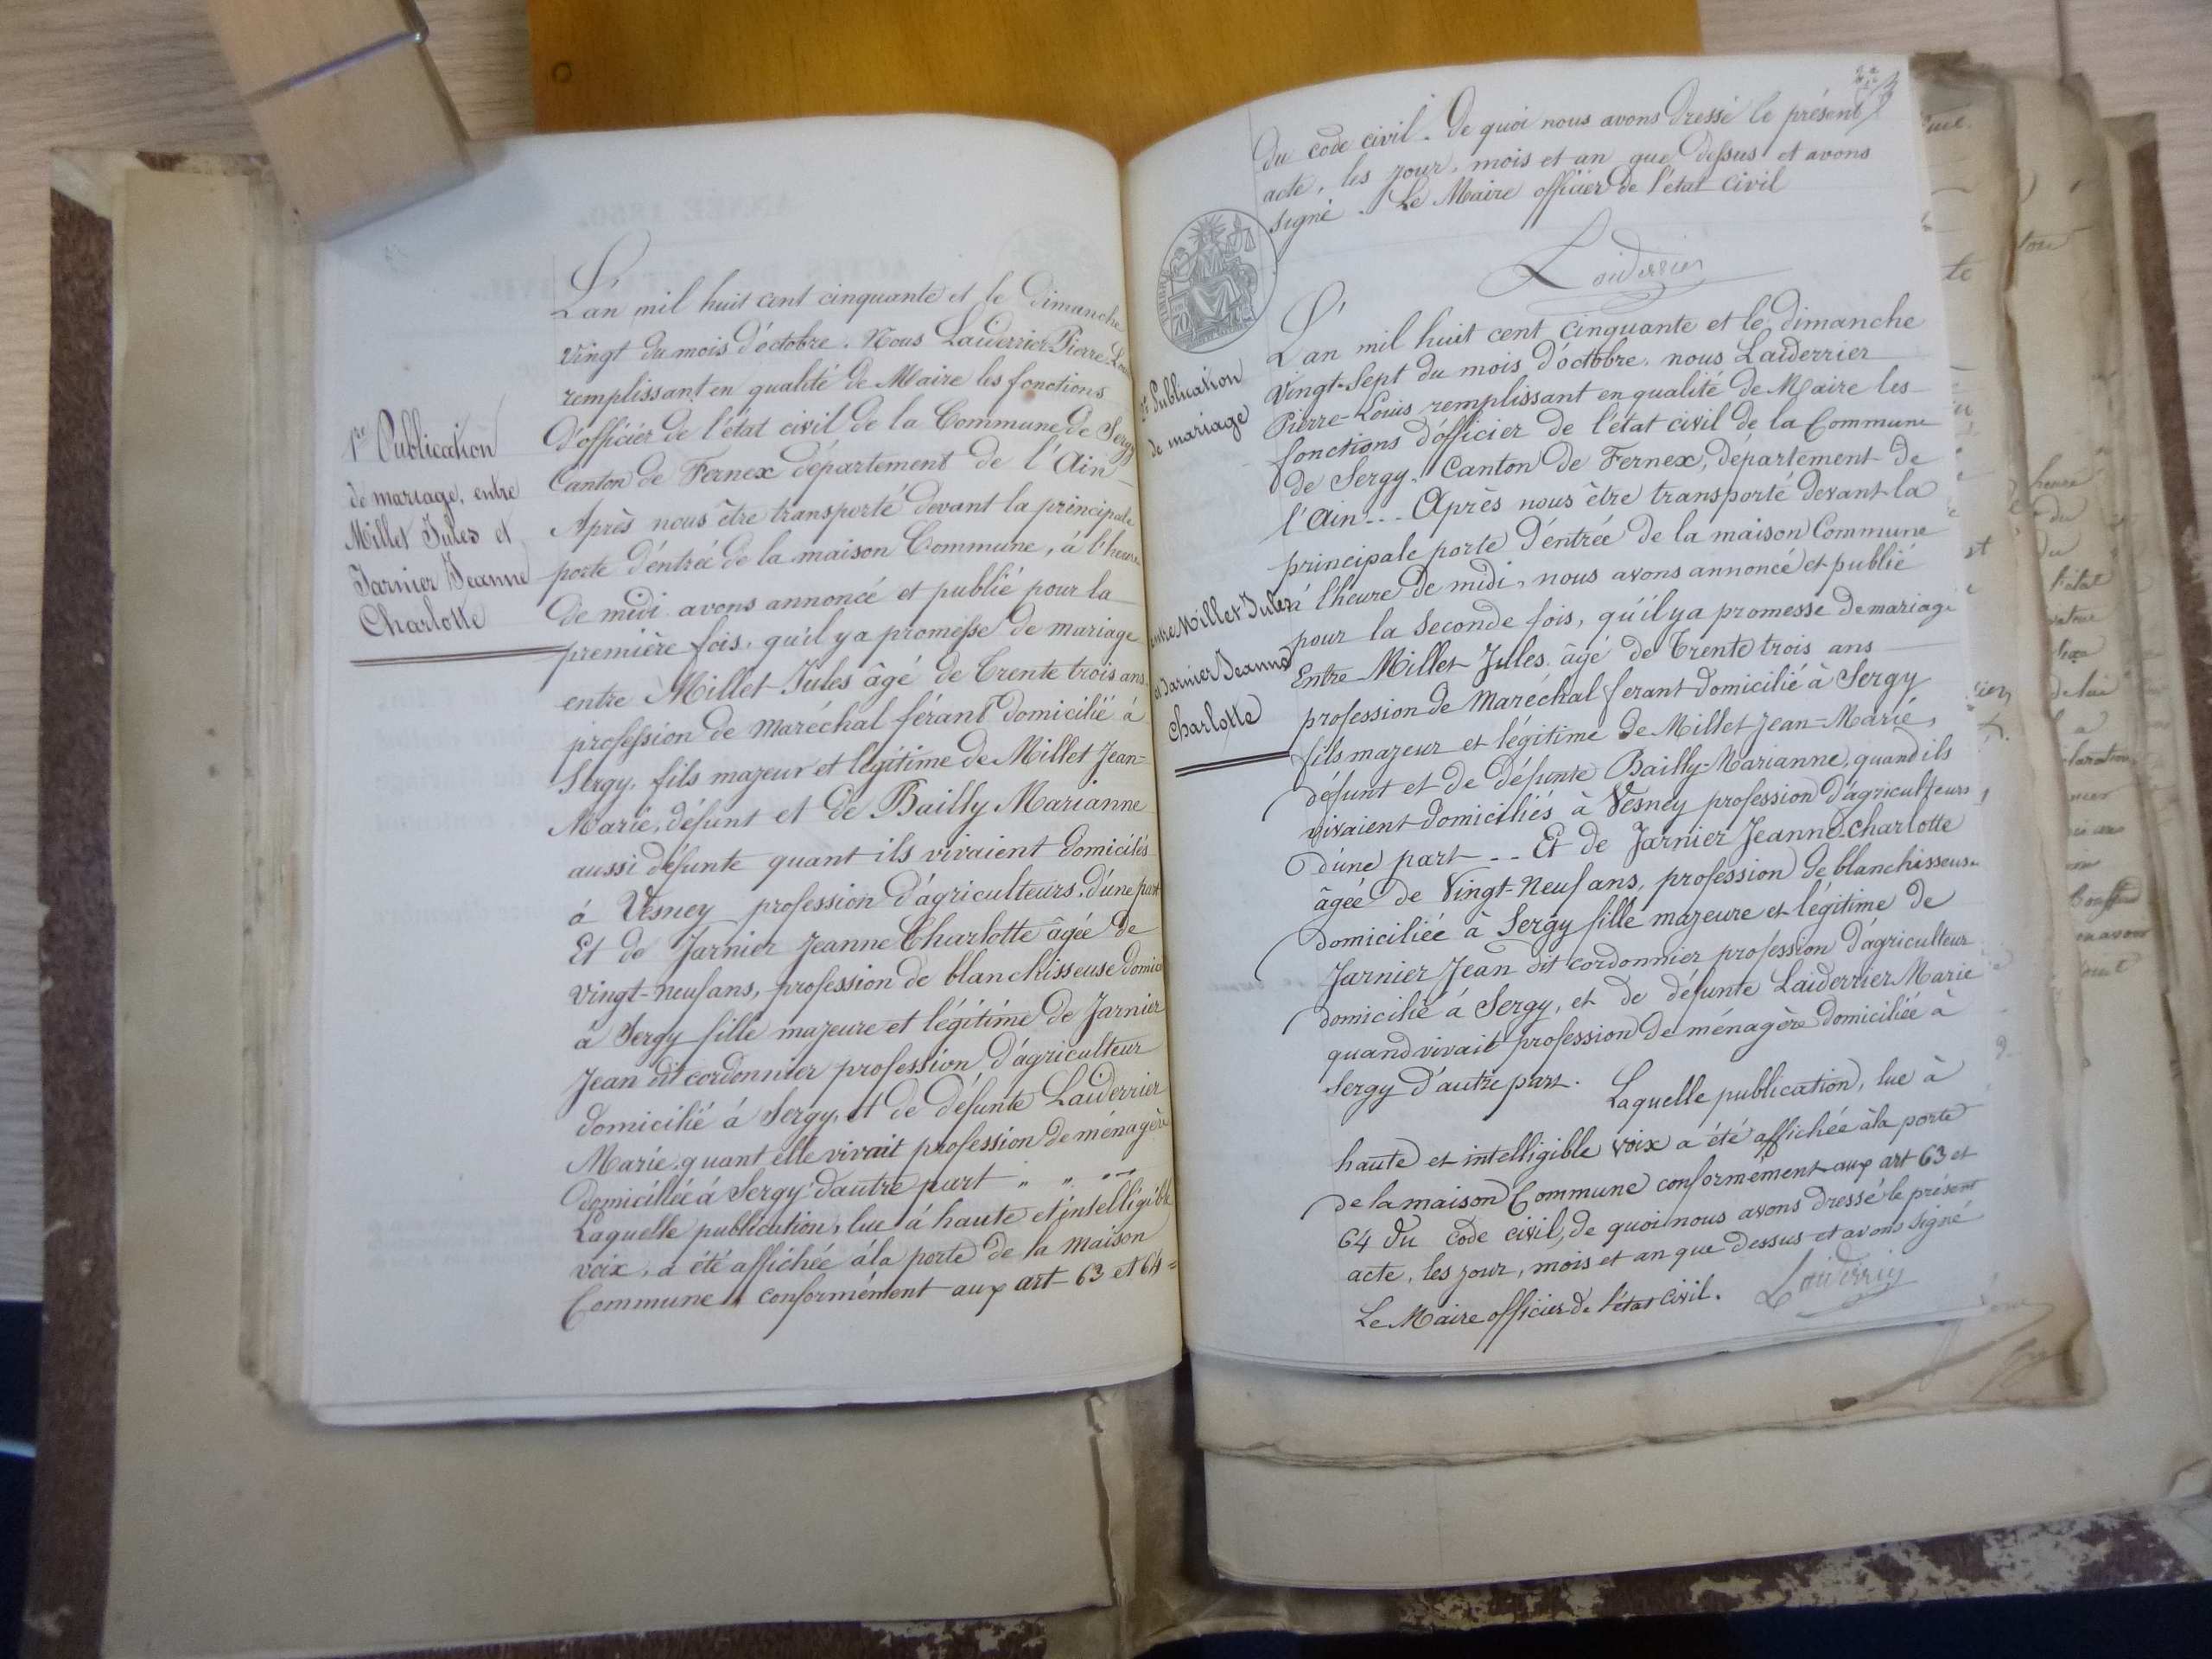 1re Publication
de mariage, entre
Millet Jules et
Jarnier Jeanne
Charlotte
L'an mil huit cent cinquante et le dimanche
vingt du mois d'octobre. Nous Laiderrier Pierre Louis
remplissant en qualité de Maire les fonctions
d'officier de l'état civil de la Commune de Sergy
Canton de Fernex département de l'Ain
Après nous être transporté devant la principale
porte d'éntrée de la maison Commune, á l'heure
de midi avons annoncé et publié pour la
première fois, qu'il y a promesse de mariage
entre Millet Jules âgé de trente trois ans
profession de maréchal férant domicilié à
Sergy, fils majeur et légitime de Millet Jean-
Marie, défunt et de Bailly Marianne
aussi défunte quant ils vivaient domiciliés
á Vesney profession d'agriculteurs, d'une part
Et de Jarnier Jeanne Charlotte âgée de
vingt-neuf ans, profession de blanchisseuse domici
à Sergy fille majeure et légitime de Jarnier
Jean dit cordonnier profession d'agriculteur
domicilié à Sergy, et de défunte Laiderrier
Marie, quant elle vivait profession de ménagère
domiciliée à Sergy d'autre part " " "
Laquelle publication, lue á haute et intelligible
voix, a été affichée à la porte de la maison
Commune conformément aux art- 63 et 64 =
du code civil. De quoi nous avons dressé le présent
acte, les jour, mois et an que dessus et avons
signé. Le Maire officier de l'état civil
Laiderrier
2e Publication
de mariage
entre Millet Jules
et Jarnier Jeanne
Charlotte
L'an mil huit cent cinquante et le dimanche
vingt-sept du mois d'octobre, nous Laiderrier
Pierre-Louis remplissant en qualité de Maire les
fonctions d'officier de l'état civil de la Commune
de Sergy, Canton de Fernex, département de
l'Ain... Après nous être transporté devant la
principale porte d'éntrée de la maison Commune
á l'heure de midi, nous avons annoncé et publié
pour la seconde fois, qu'il y a promesse de mariage
Entre Millet Jules âgé de trente trois ans
profession de Maréchal ferant domicilié à Sergy
fils majeur et légitime de Millet Jean-Marie,
défunt et de défunte Bailly-Marianne, quand ils
vivaient domiciliés à Vesney profession d'agriculteurs,
d'une part -- Et de Jarnier Jeanne Charlotte
âgée de Vingt-Neuf ans, profession de blanchisseuse
domiciliée à Sergy fille majeure et légitime de
Jarnier Jean dit cordonnier profession d'agriculteur
domicilié à Sergy, et de défunte Laiderrier Marie
quand vivait profession de ménagère domiciliée à
Sergy d'autre part. Laquelle publication, lue à
haute et intelligible voix a été affichée à la porte
de la maison Commune conformément aux art 63 et
64 du code civil, de quoi nous avons dressé le présent
acte, les jour, mois et an que dessus et avons signé
Le Maire officier de l'état civil. Laiderrier